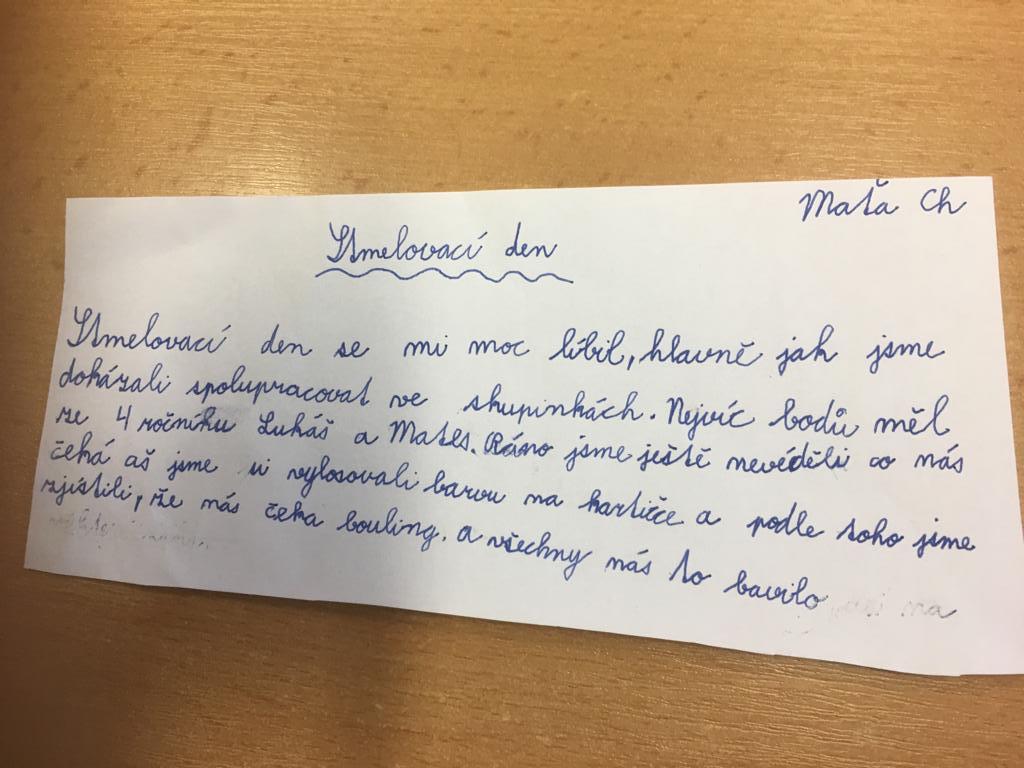 Maťa Ch
Stmelovací den
Stmelovací den se mi moc líbil, hlavně jak jsme
dokázali spolupracovat ve skupinkách. Nejvíc bodů měl
ze 4 ročníku Lukáš a Mates. Ráno jsme ještě nevěděli co nás
čeká aš jsme si vylosovali barvu na kartičce a podle toho jsme
zjistili, že nás čeka bouling. a všechny nás to bavilo